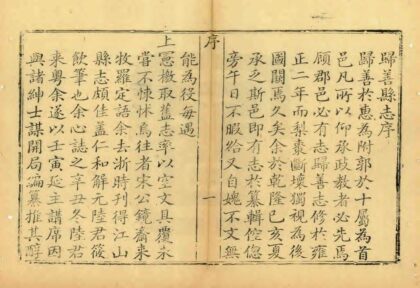 歸善縣志序
歸善於惠為附郭於十屬為首
邑凡所以仰承政教者必先焉
顧郡邑必有志歸善志修於雍
正二年而梨棗斷壞獨視為後
國闕焉久矣余於乾隆己亥夏
承乏斯邑即有志於纂輯倥偬
旁午日不暇給又自媿不文無
序
一
能為役每遇
上憲檄取蓋志率以空文具覆未
嘗不悚怵焉往者宋公鏡齋來
牧羅定語余去浙時刋得江山
縣志頗佳蓋仁和解元陸君筱
飲筆也余心誌之辛丑冬陸君
來粵余遂以壬寅延主講席因
與諸紳士謀開局編纂推其醇